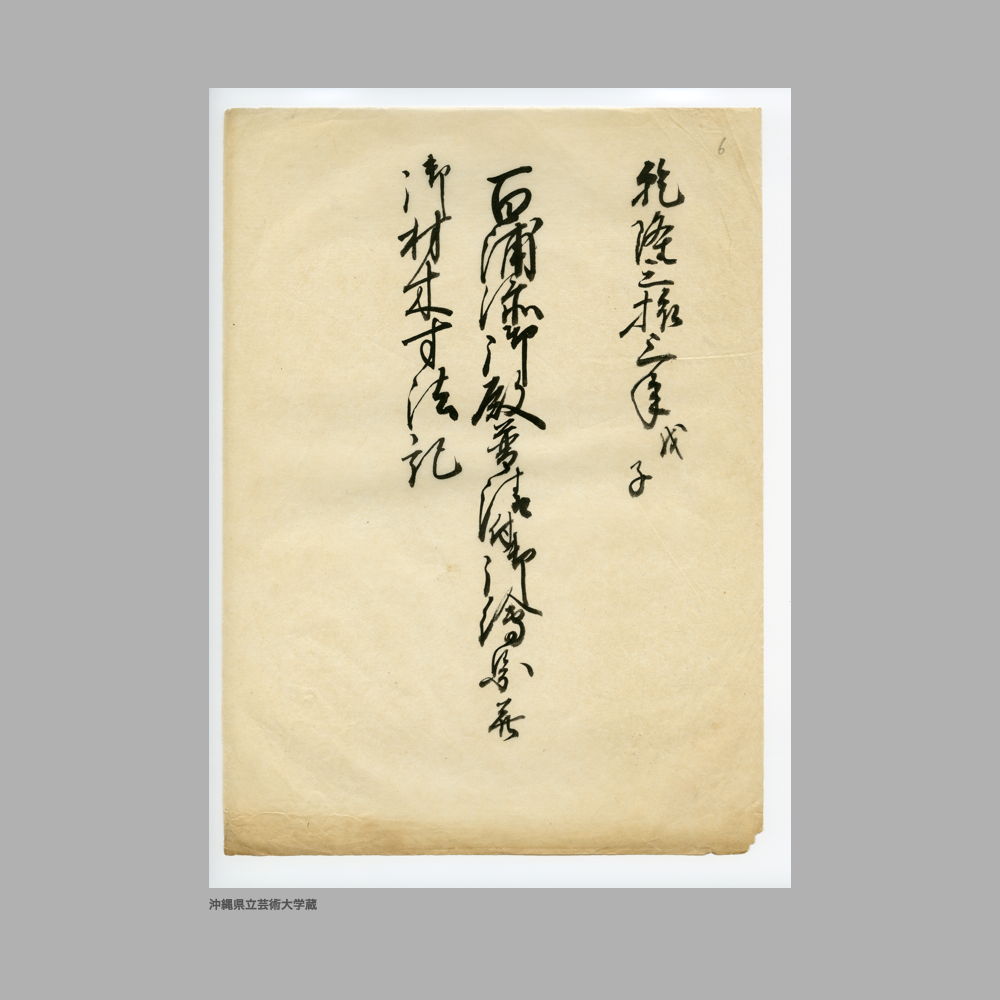 6
乾隆三拾三年戊子
百浦添御殿普請付御繪図并
御材木寸法記
沖縄県立芸術大学蔵